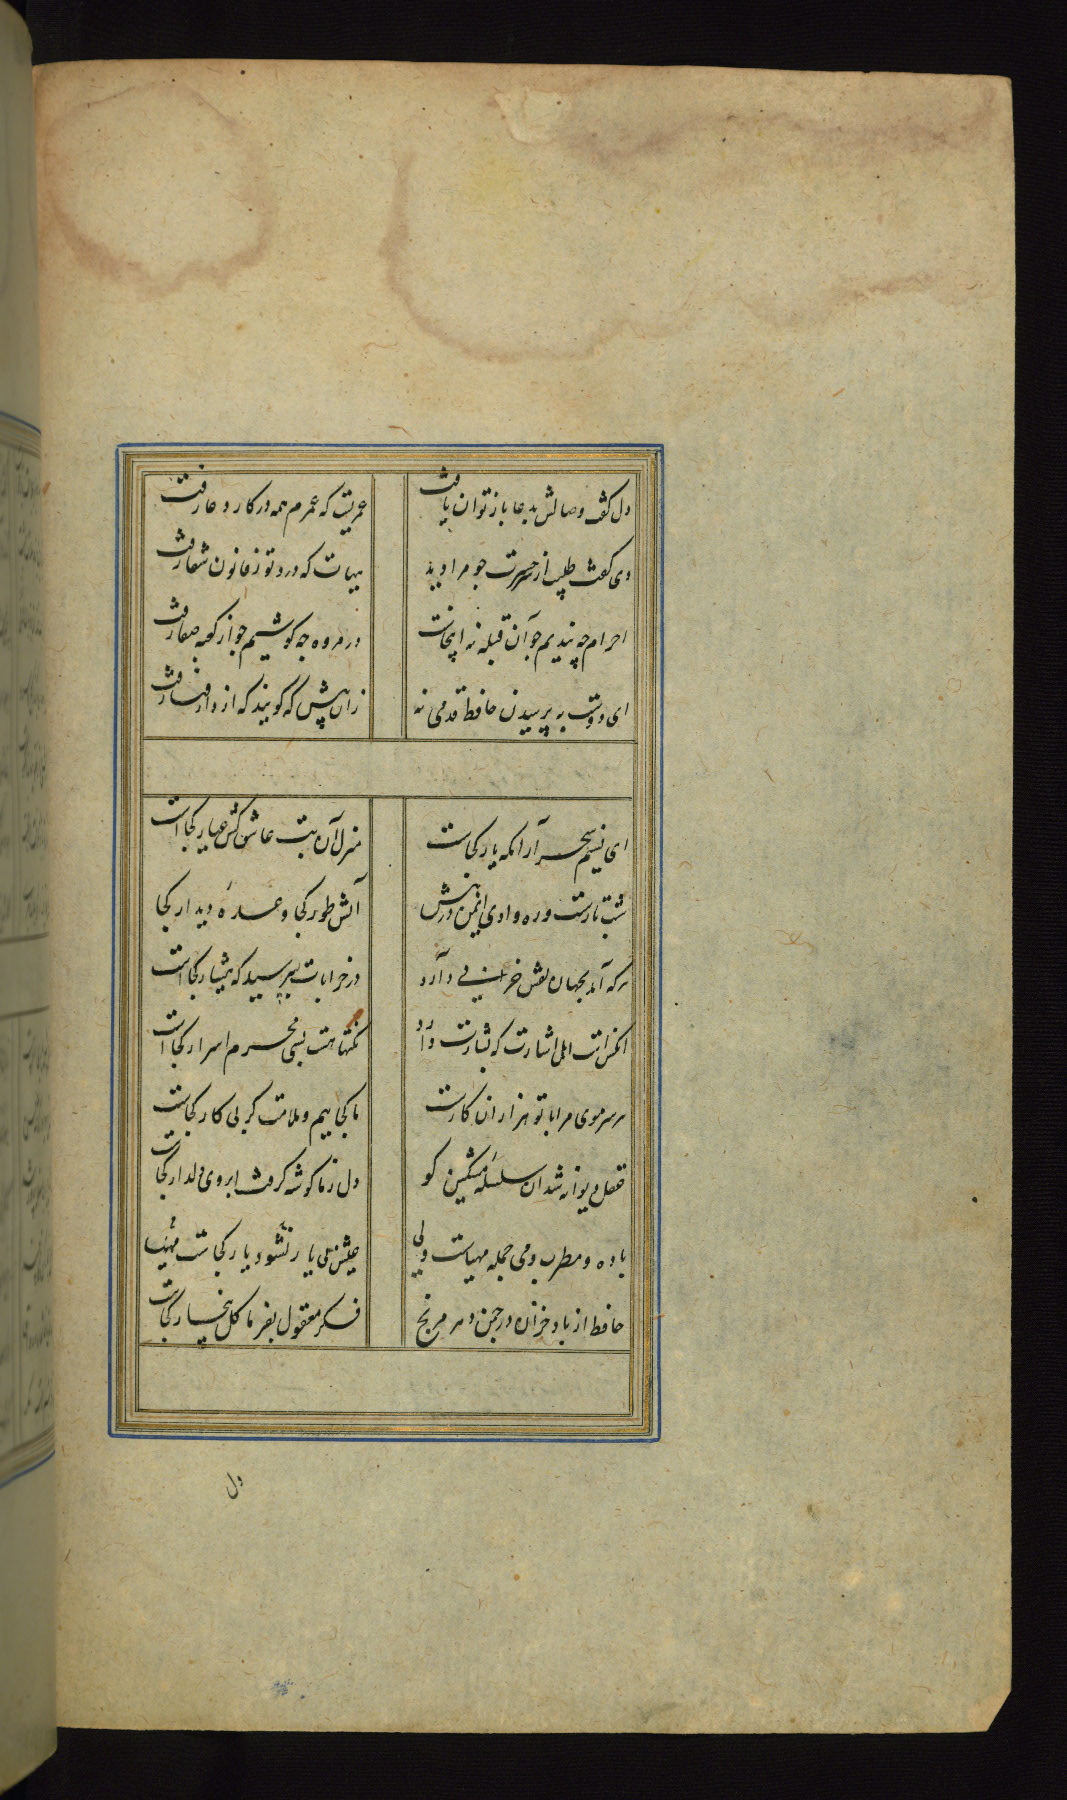 دل گفت وصالش بدعا باز توان یافت
عمریست که عمرم همه در کار دعا رفت
دی گفت طبیب از سر حسرت چو مرا دید
هیهات که درد تو ز قانون شفا رفت
احرام چه بندیم چو آن قبله نه اینجاست
در مروه چه کوشیم چو از کعبه صفا رفت
ای دوست به پرسیدن حافظ قدمی نه
زان پیش که گویند که از دار فنا رفت
ای نسیم سحر آرامگه یار کجاست
منزل آن بت عاشق کش عیار کجاست
شب تارست و ره وادی ایمن در پیش
آتش طور کجا وعدهٔ دیدار کجا
هر که آمد بجهان نقش خرابی دارد
در خرابات بپرسید که هشیار کجاست
آنکس است اهل اشارت که بشارت داند
نکتها هست بسی محرم اسرار کجاست
هر سر موی مرا با تو هزاران کارست
ما کجاییم و ملامت گر بی کار کجاست
عقل دیوانه شد آن سلسلهٔ مشکین کو
دل ز ما گوشه گرفت ابروی دلدار کجاست
باده و مطرب و می جمله مهیاست ولی
عیش بی یار نشود یار کجاست
حافظ از باد خزان در چمن دهر مرنج
فکر معقول بفرما گل بی خار کجاست
دل